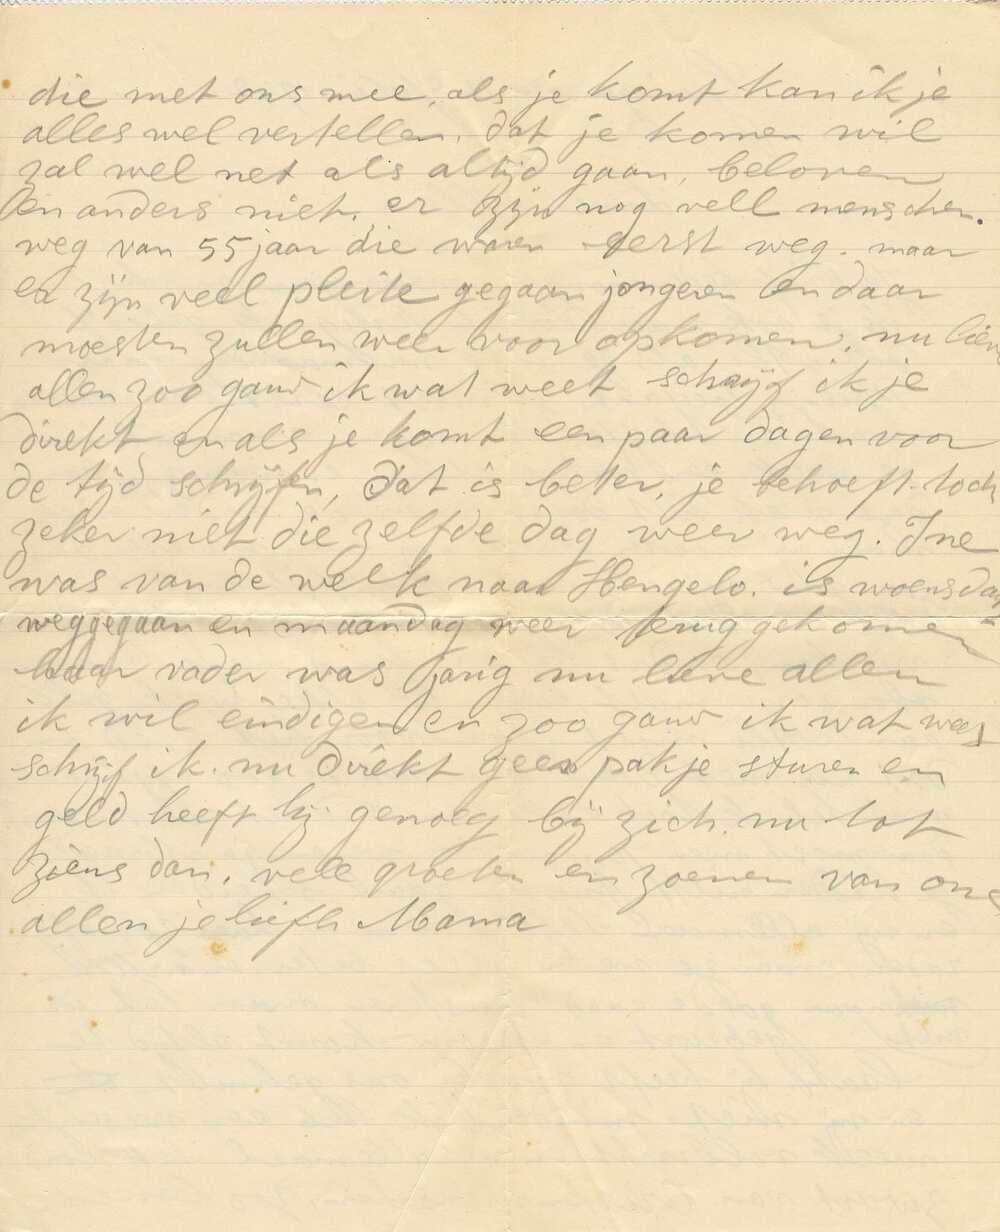 die met ons mee, als je komt kan ik je
alles wel vertellen. dat je komen wil
zal wel net als altijd gaan, beloven
en anders niet. er zijn nog vell menschen.
weg van 55 jaar die waren eerst weg. maar
er zijn veel pleite gegaan jongeren en daar
moesten zullen weer voor opkomen. nu lieve
allen zoo gauw ik wat weet schrijf ik je
direkt en als je komt een paar dagen voor
de tijd schrijfen, dat is beter, je behoeft toch
zeker niet die zelfde dag weer weg. Ine
was van de week naar Hengelo. is woensdag
weggegaan en maandag weer terug gekomen
haar vader was jarig nu lieve allen
ik wil eindigen en zoo gauw ik wat weet
schrijf ik. nu direkt geen pakje sturen en
geld heeft hij genoeg bij zich. nu tot
ziens dan. vele groeten en zoenen van ons
allen je liefh Mama